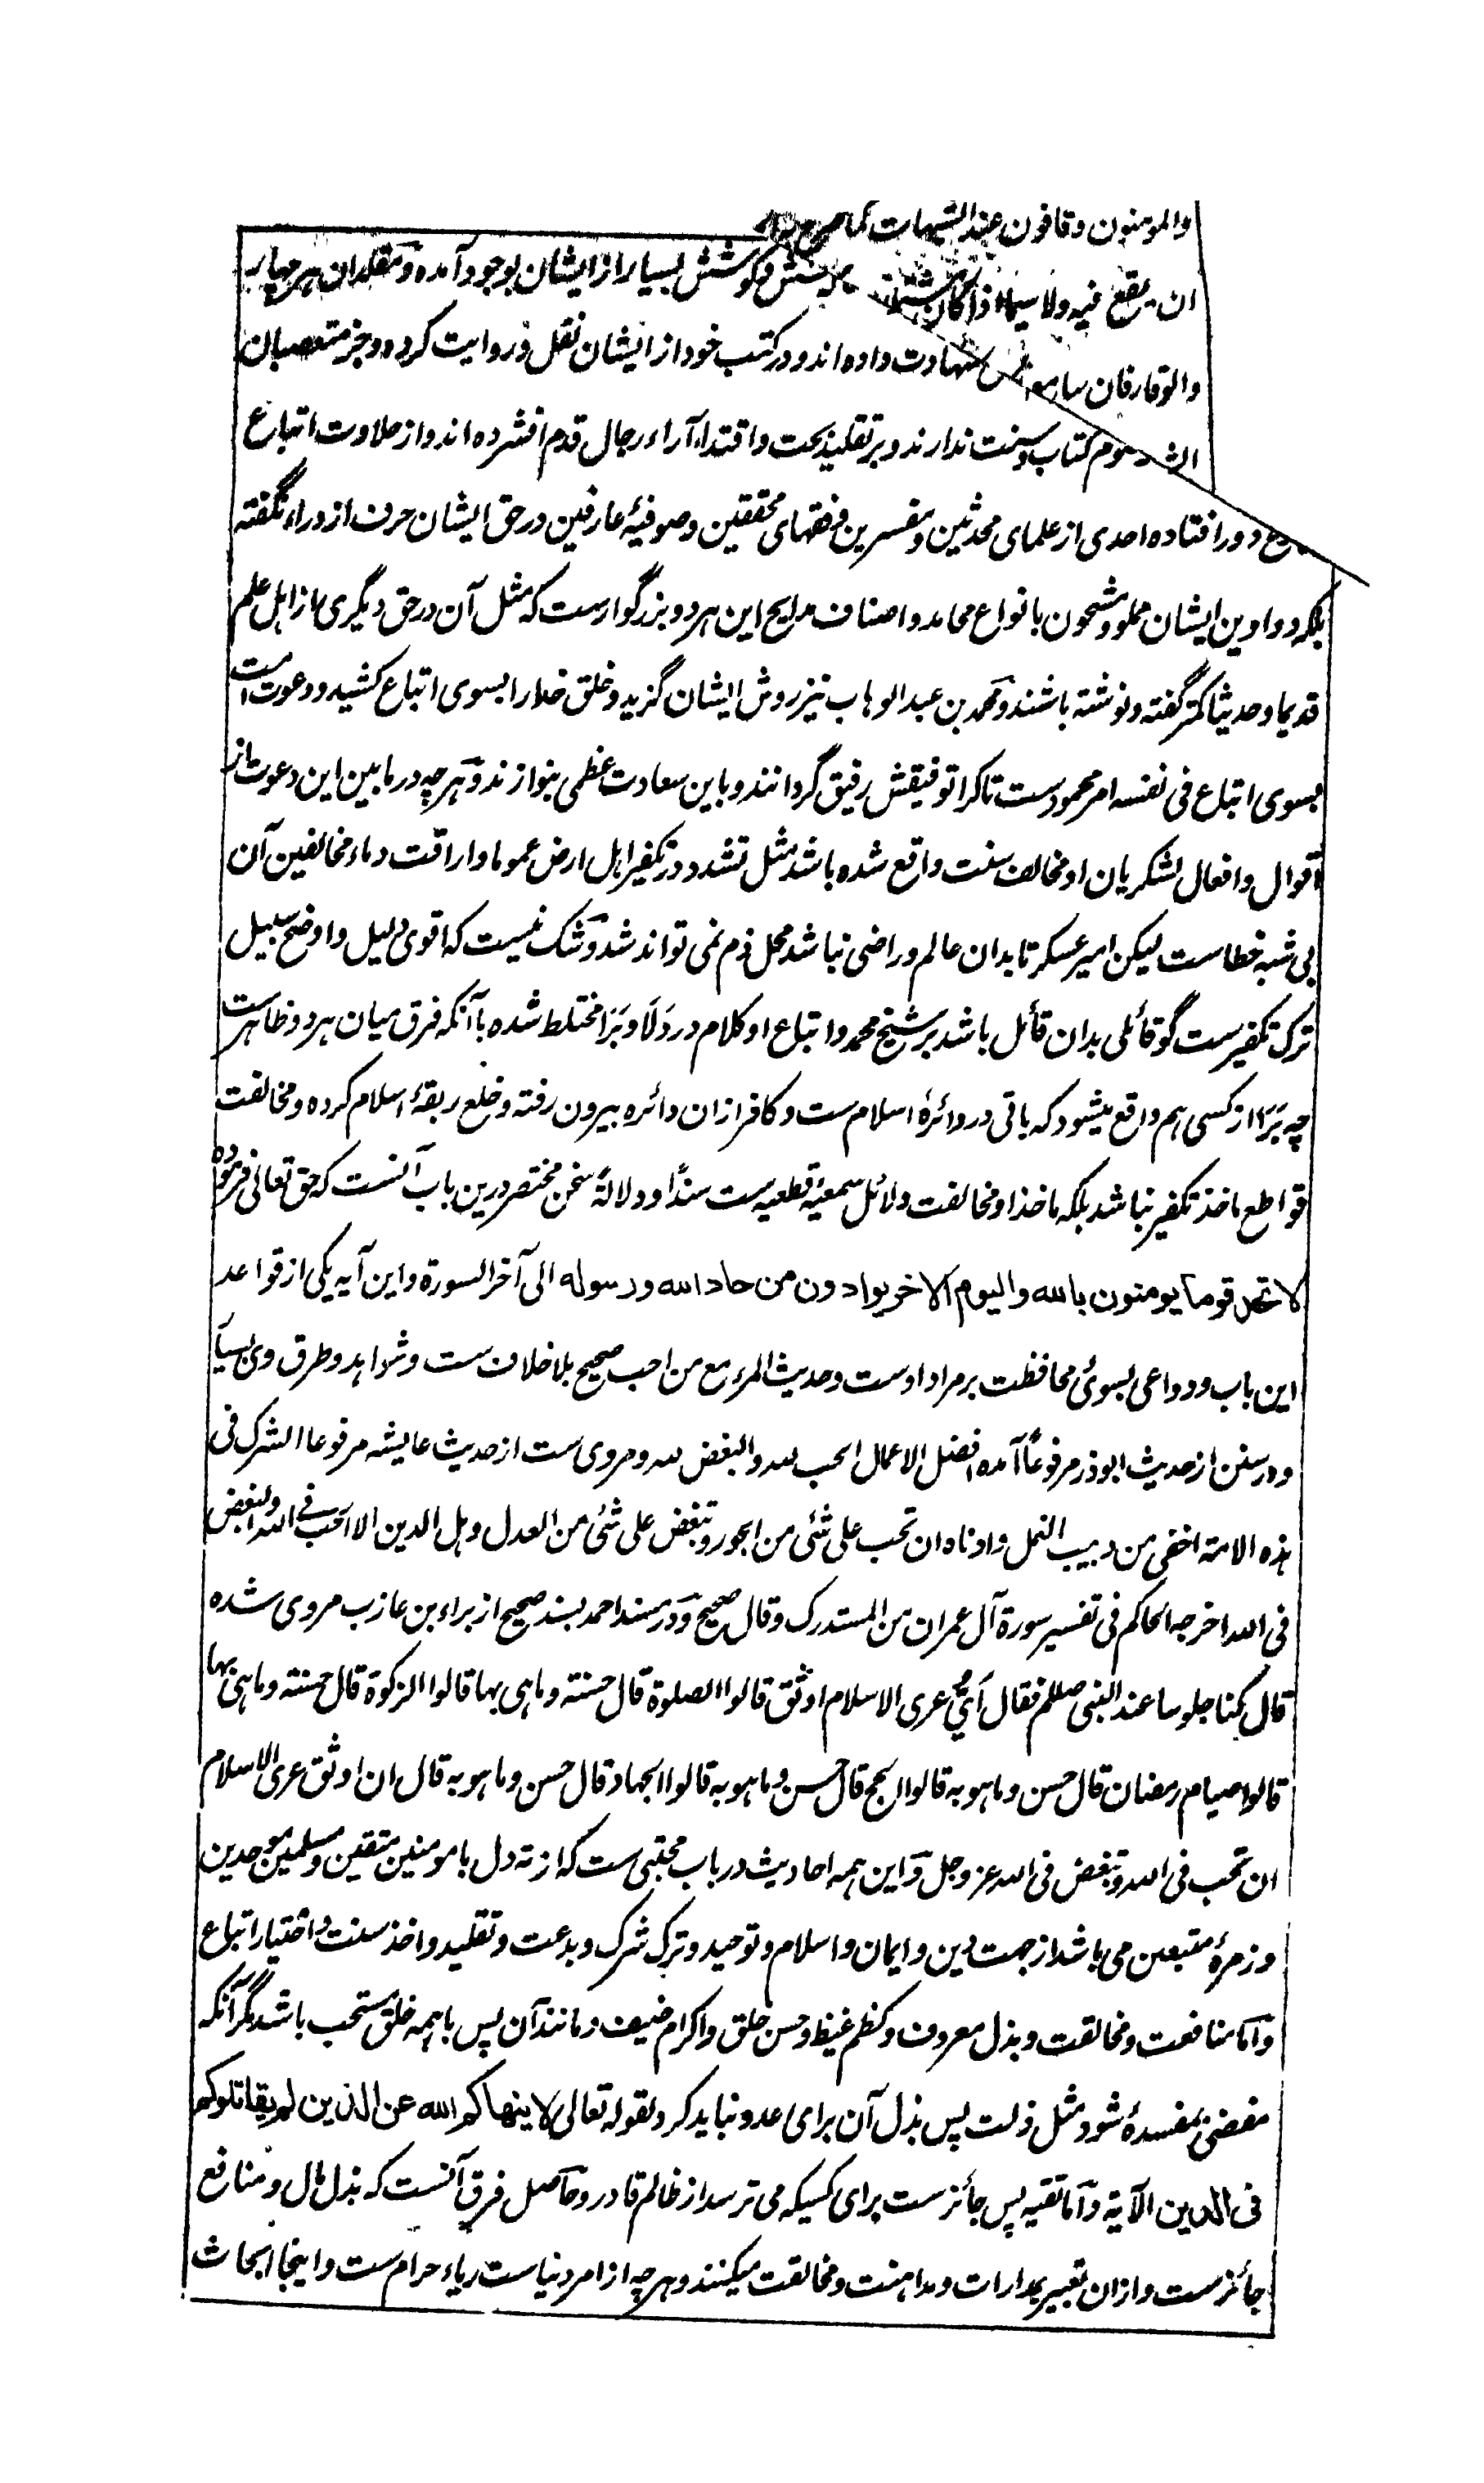 والمومنون وقافون عند الشبهات کما صرح به
ان یقع فیه ولا سیما اذا کان
کوشش بسیار از ایشان بوجود آمده و مقلدان هر چهار
والوقار فان
شهادت داده اند و در کتب خود از ایشان نقل و روایت کرده و جز متعصبان
کتاب و سنت ندارند و بر تقلید بحت و اقتداء آراء رجال قدم افشرده اند و از حلاوت اتباع
دور افتاده احدی از علمای محدثین و مفسرین و فقهای محققین و صوفیهٔ عارفین در حق ایشان حرف از وراء نگفته
بلکه دواوین ایشان مملو و مشحون بانواع محامد و اصناف مدایح این هر دو بزرگوارست که مثل آن در حق دیگری از اهل علم
قدیما و حدیثا کمتر گفته و نوشته باشند و محمد بن عبد الوهاب نیز روش ایشان گزید و خلق خدا را بسوی اتباع کشید و دعوت است
بسوی اتباع فی نفسه امر محمودست تا کرا توفیقش رفیق گردانند و باین سعادت عظمی بنوازند و هر چه در مابین این دعوت از
اقوال و افعال لشکریان او مخالف سنت واقع شده باشد مثل تشدد در تکفیر اهل ارض عموما و اراقت دماء مخالفین آن
بی شبه خطاست لیکن امیر عسکر تا بدان عالم و راضی نباشد محل ذم نمی تواند شد و شک نیست که اقوی دلیل و اوضح سبیل
ترک تکفیرست گو قائلی بدان قائل باشد بر شیخ محمد و اتباع او کلام در دَلَا و بَرَا مختلط شده باآنکه فرق میان هر دو ظاهرست
چه بَرَا از کسی هم واقع میشود که باقی در دائرهٔ اسلام ست و کافر ازان دائره بیرون رفته و خلع ربقهٔ اسلام کرده و مخالفت
قواطع ماخذ تکفیر نباشد بلکه ماخذ او مخالفت دلائل سمعیهٔ قطعیه ست سندًا و دلالةً سخن مختصر درین باب آنست که حق تعالی فرموده
لا تجد قوما یومنون بالله والیوم الآخر یوادون من حاد الله ورسوله الی آخر السورة و این آیه یکی از قواعد
این باب و دواعی بسوئ محافظت بر مراد اوست و حدیث المرء مع من احب صحیح بلا خلاف ست و شواهد و طرق وی بسیار
و در سنن از حدیث ابوذر مرفوعاً آمده افضل الاعمال الحب لله والبغض لله و مروی ست از حدیث عایشه مرفوعا الشرک فی
هذه الامة اخفی من دبیب النمل وادناه ان تحب علی شئ من الجور و تبغض علی شئ من العدل وهل الدین الا الحب فی الله والبغض
فی الله اخرجه الحاکم فی تفسیر سورة آل عمران من المستدرک وقال صحیح و در مسند احمد بسند صحیح از براء بن عازب مروی شده
قال کنا جلوسا عند النبی صللم فقال أیُّ عری الاسلام اوثق قالوا الصلوة قال حسنة وما هی بها قالوا الزکوة قال حسنة وما هی بها
قالوا صیام رمضان قال حسن وما هو به قالوا الحج قال حسن وما هو به قالوا الجهاد قال حسن وما هو به قال ان اوثق عری الاسلام
ان تحب فی الله وتبغض فی الله عز وجل و این همه احادیث در باب محبتی ست که از ته دل با مومنین متقین و مسلمین موحدین
و زمرهٔ متبعین می باشد از جهت دین و ایمان و اسلام و توحید و ترک شرک و بدعت و تقلید و اخذ سنت و اختیار اتباع
و اما منافعت و مخالقت و بذل معروف و کظم غیظ و حسن خلق و اکرام ضیف و مانند آن پس با همه خلق مستحب باشد مگر آنکه
مفضی بمفسدهٔ شود مثل ذلت پس بذل آن برای عدو نباید کرد لقوله تعالی لا ینهاکم الله عن الذین لم یقاتلوکم
فی الدین الآیة و اما تقیه پس جائزست برای کسیکه می ترسد از ظالم قادر و حاصل فرق آنست که بذل مال و منافع
جائزست و ازان تعبیر بمدارات و مداهنت و مخالقت میکنند و هر چه از امر دنیاست ریاء حرام ست و اینجا ابحاث